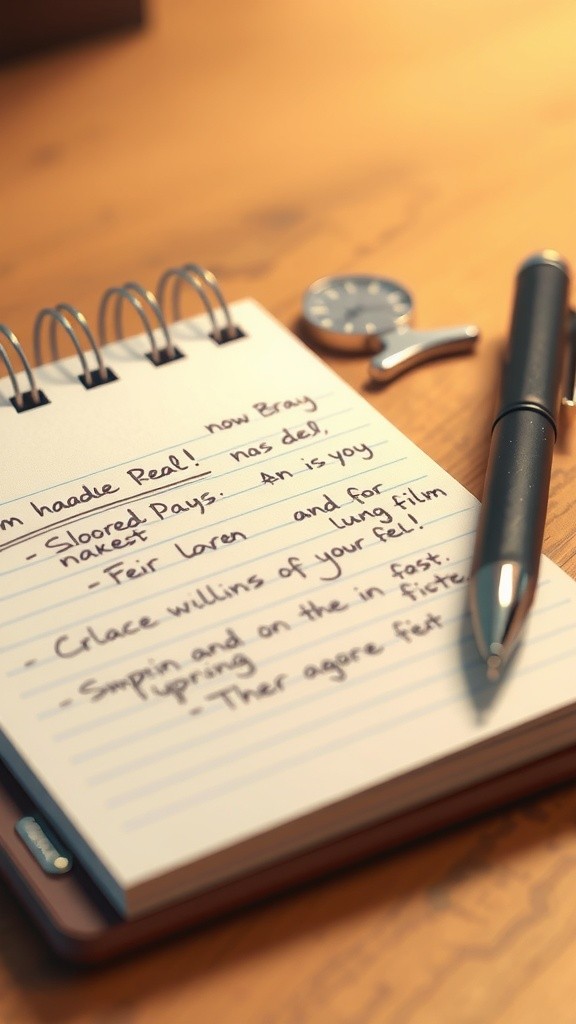 now Bray
m haadle Real! nas del,
- Sloored Pays. An is yoy
nakest
- Feir laren and for
lung film
- Crlace willins of your fel!
- Smpin and on the in fast.
upring fiste
- Ther agore feit